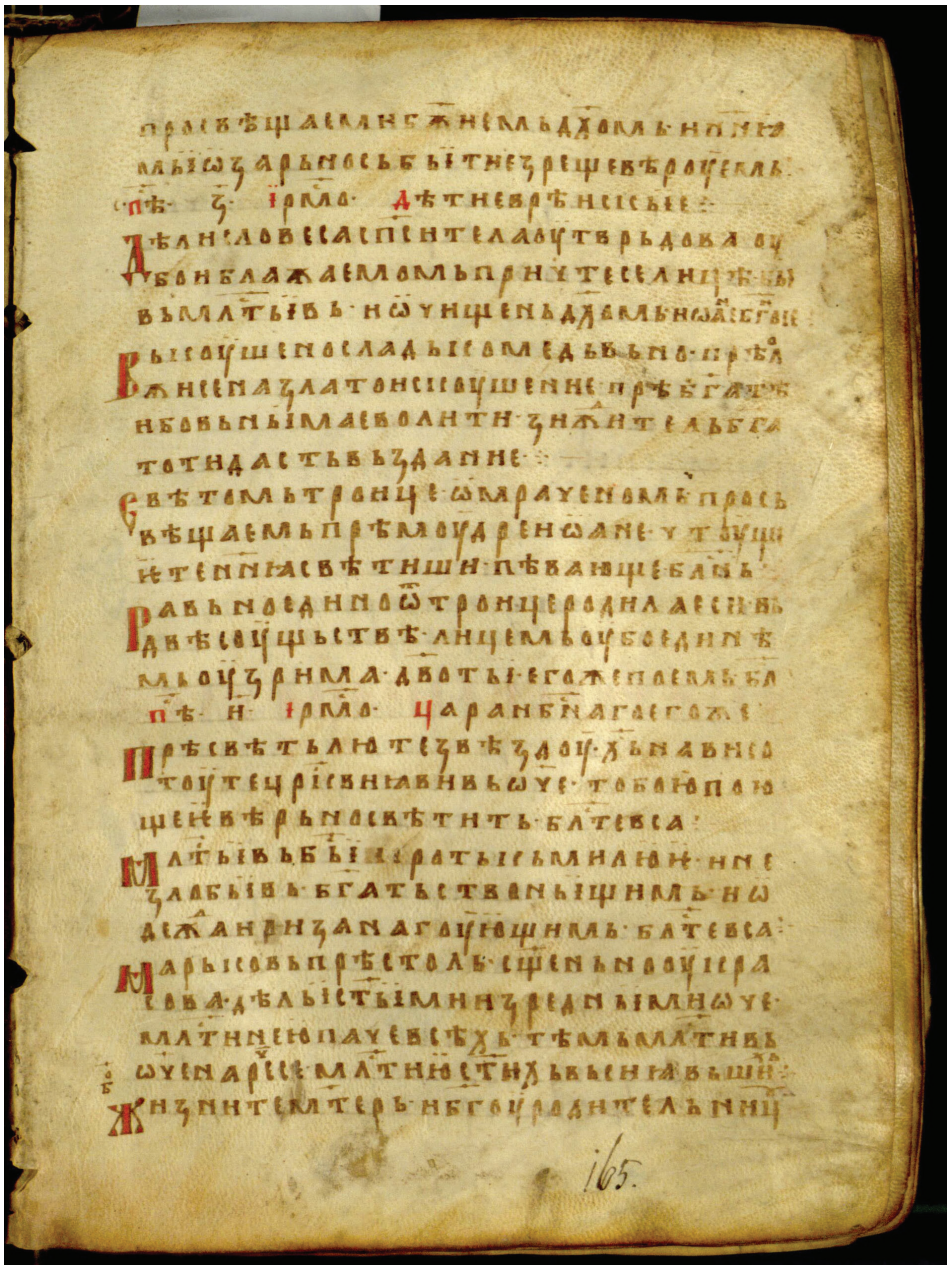 просвѣщаеми бж҃иемь дх҃омь· и пиню
мыі ѡзарьносьбыіти езреще вѣроуемь·
пѣ· з҃· ірмо· дѣти еврѣисскыіе :
Дѣли словеса спс҃итела оутврьдова оу
бо и блажаемомь причте се лицѣ бы
вь мл҃тыівь· и ѡчищень дх҃омь· и ѡан҃е бг҃ог
Вькоушено сладько медьвьно· прѣл
жисе на златои скоушение· прѣбг҃атѣ
и бо вьныіма еволити· зиж҃итель бг҃а
то ти дасть вьздание :
Светомь троице ѡмраченомь просв
вѣщаемь прѣмоудре иѡане· чтоущи
їх те ниіа светиши· пѣвающе бл҃нь
Равьно едино ѿ троице родила еси· вь
двѣ соущьствѣ· лицемь оубо единѣ
мь оузрима· дв҃о тыі· егоже поемь бл
пѣ· и҃· ірмо· цара нб҃нагоегоже
Прѣсвѣтьлю те звѣздоу· хь· иависо
тоу те цр҃іеви іависвь ѡч҃е· тобою пою
щеи вѣрьно светить· бл҃те вса :
Мл҃тыівь быі кротькь милюи· и не
злобыівь· бг҃атьство ныіщимь· и ѡ
деж҃а и риза нагоуіющимь· бл҃те вса :
Марьковь прѣстоль· сщ҃еньно оукра
сова· дѣль чистыіми изредныіми ѡч҃е·
мл҃тинею паче всѣхь· тѣмь мл҃тивь
ѡч҃е нарчесе· мл҃тию ст҃ихь вьсе іавьши :
Жизни те мт҃ерь· и бг҃ороудительниц
165.